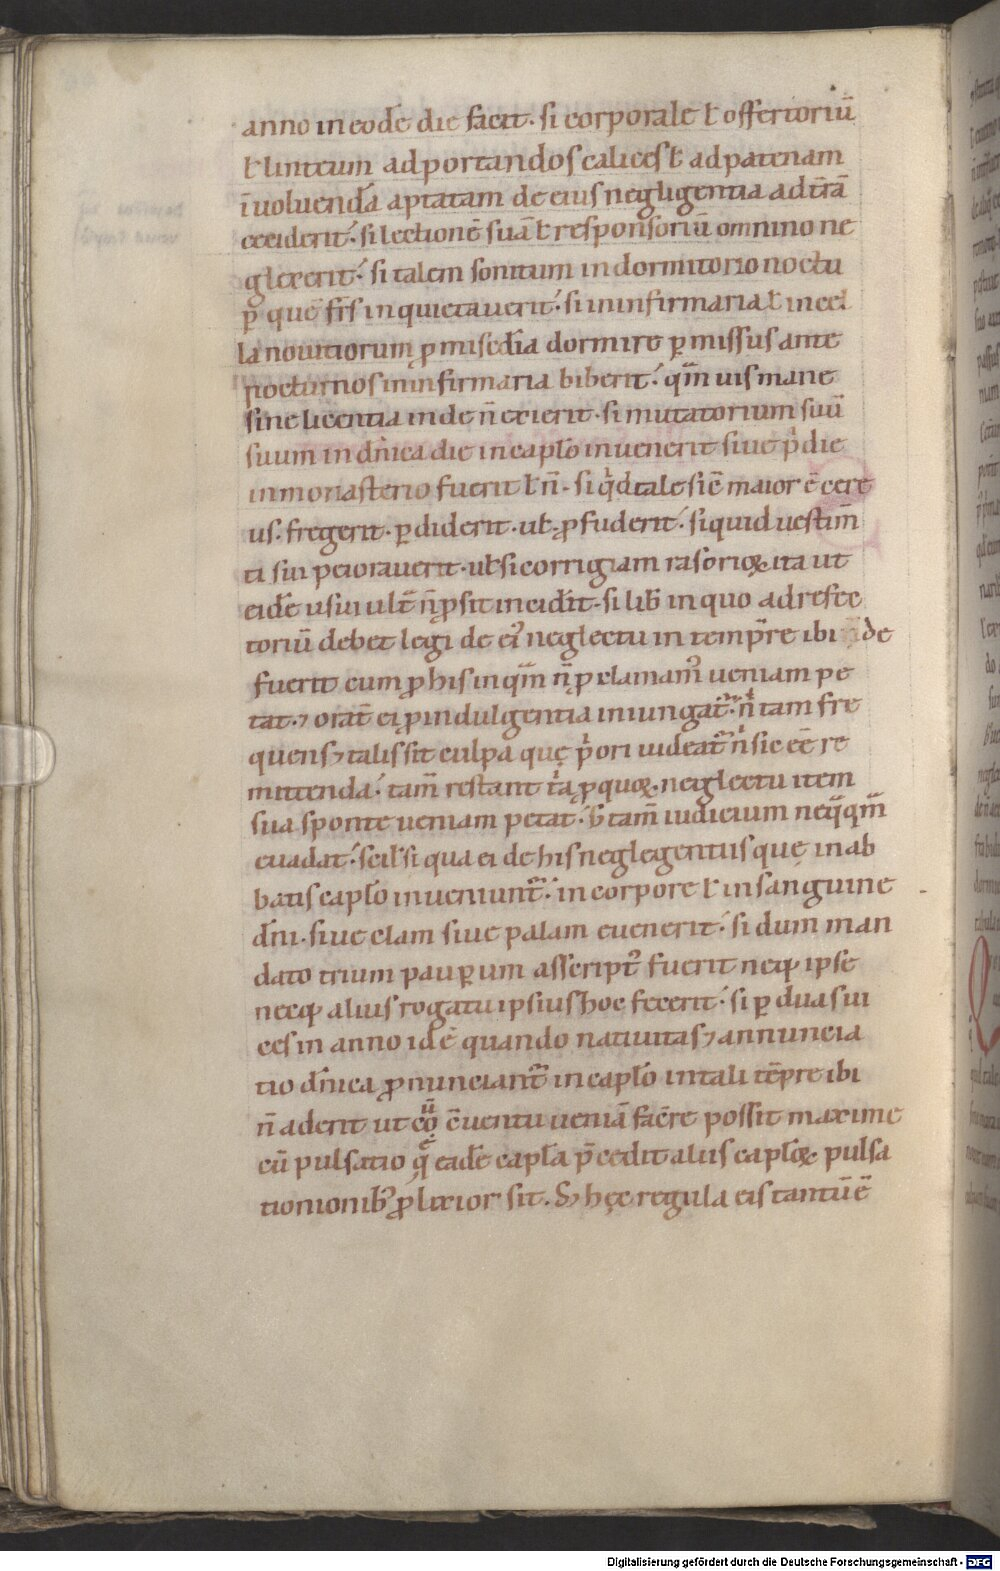 anno in eodē die facit· si corporale ł offertoriū
ł linteum ad portandos calices ł ad patenam
īuoluendā aptatam de eius negligentia ad tr̄ā
ceciderit· si lectionē suā ł responsoriū omnino ne
glexerit· si talem sonitum in dormitorio noctu
ꝑ quē fr̄s inquietauerit· si in infirmaria ł in cel
la nouitiorum ꝓ mised̄ia dormire ꝑmissus ante
nocturnos in infirmaria biberit· qm̄uis mane
sine licentia inde n̄ exierit· si mutatorium suū
suum in dn̄ica die in capło inuenerit siue p̄die
in monasterio fuerit ł n̄· si qͥd tale sic̄ maior ē cere
us· fregerit· ꝑdiderit· uł ꝓfuderit· si quid uestim̄
ti sui peiorauerit· uł si corrigiam rasorioꝝ ita ut
eidē usui ult̄ n̄ ꝓsit incid̄it· si lib̄ in quo ad refec
toriū debet legi de eiꝰ neglectu in temp̄re ibi de
fuerit cum ꝓ his inqm̄ n̄ ꝓclamamꝰ ueniam pe
tat· ⁊ orat̄ ei ꝓ indulgentia iniungat̄· nͥ tam fre
quens ⁊ talis sit culpa quę pͥori uideat̄ nͥ sic eē re
mittenda· tam̄ restant tͣ ꝓ quoꝝ neglectu item
sua sponte ueniam petat· s̄ tam̄ iudicium neq̄qm̄
euadat· scił si qua ei de his neglegentiis quę in ab
batis capło inueniunt̄· in corpore ł in sanguine
dn̄i· siue clam siue palam euenerit· si dum man
dato trium pauꝑum asscriptꝰ fuerit neqꝫ ipse
necqꝫ alius rogatu ipsius hoc fecerit· si ꝑ duas ui
ces in anno idē quando natiuitas ⁊ annuncia
tio dn̄ica ꝓnunciant̄ in capło in tali tēpre ibi
n̄ aderit ut cū c̄uentu ueniā facere possit maxime
cū pulsatio q̄ eadē capła p̄cedit aliis capłoꝝ pulsa
tionionibꝰ ꝓlixior sit. S; hęc regula eis tantū ē
Digitalisierung gefördert durch die Deutsche Forschungsgemeinschaft - DFG